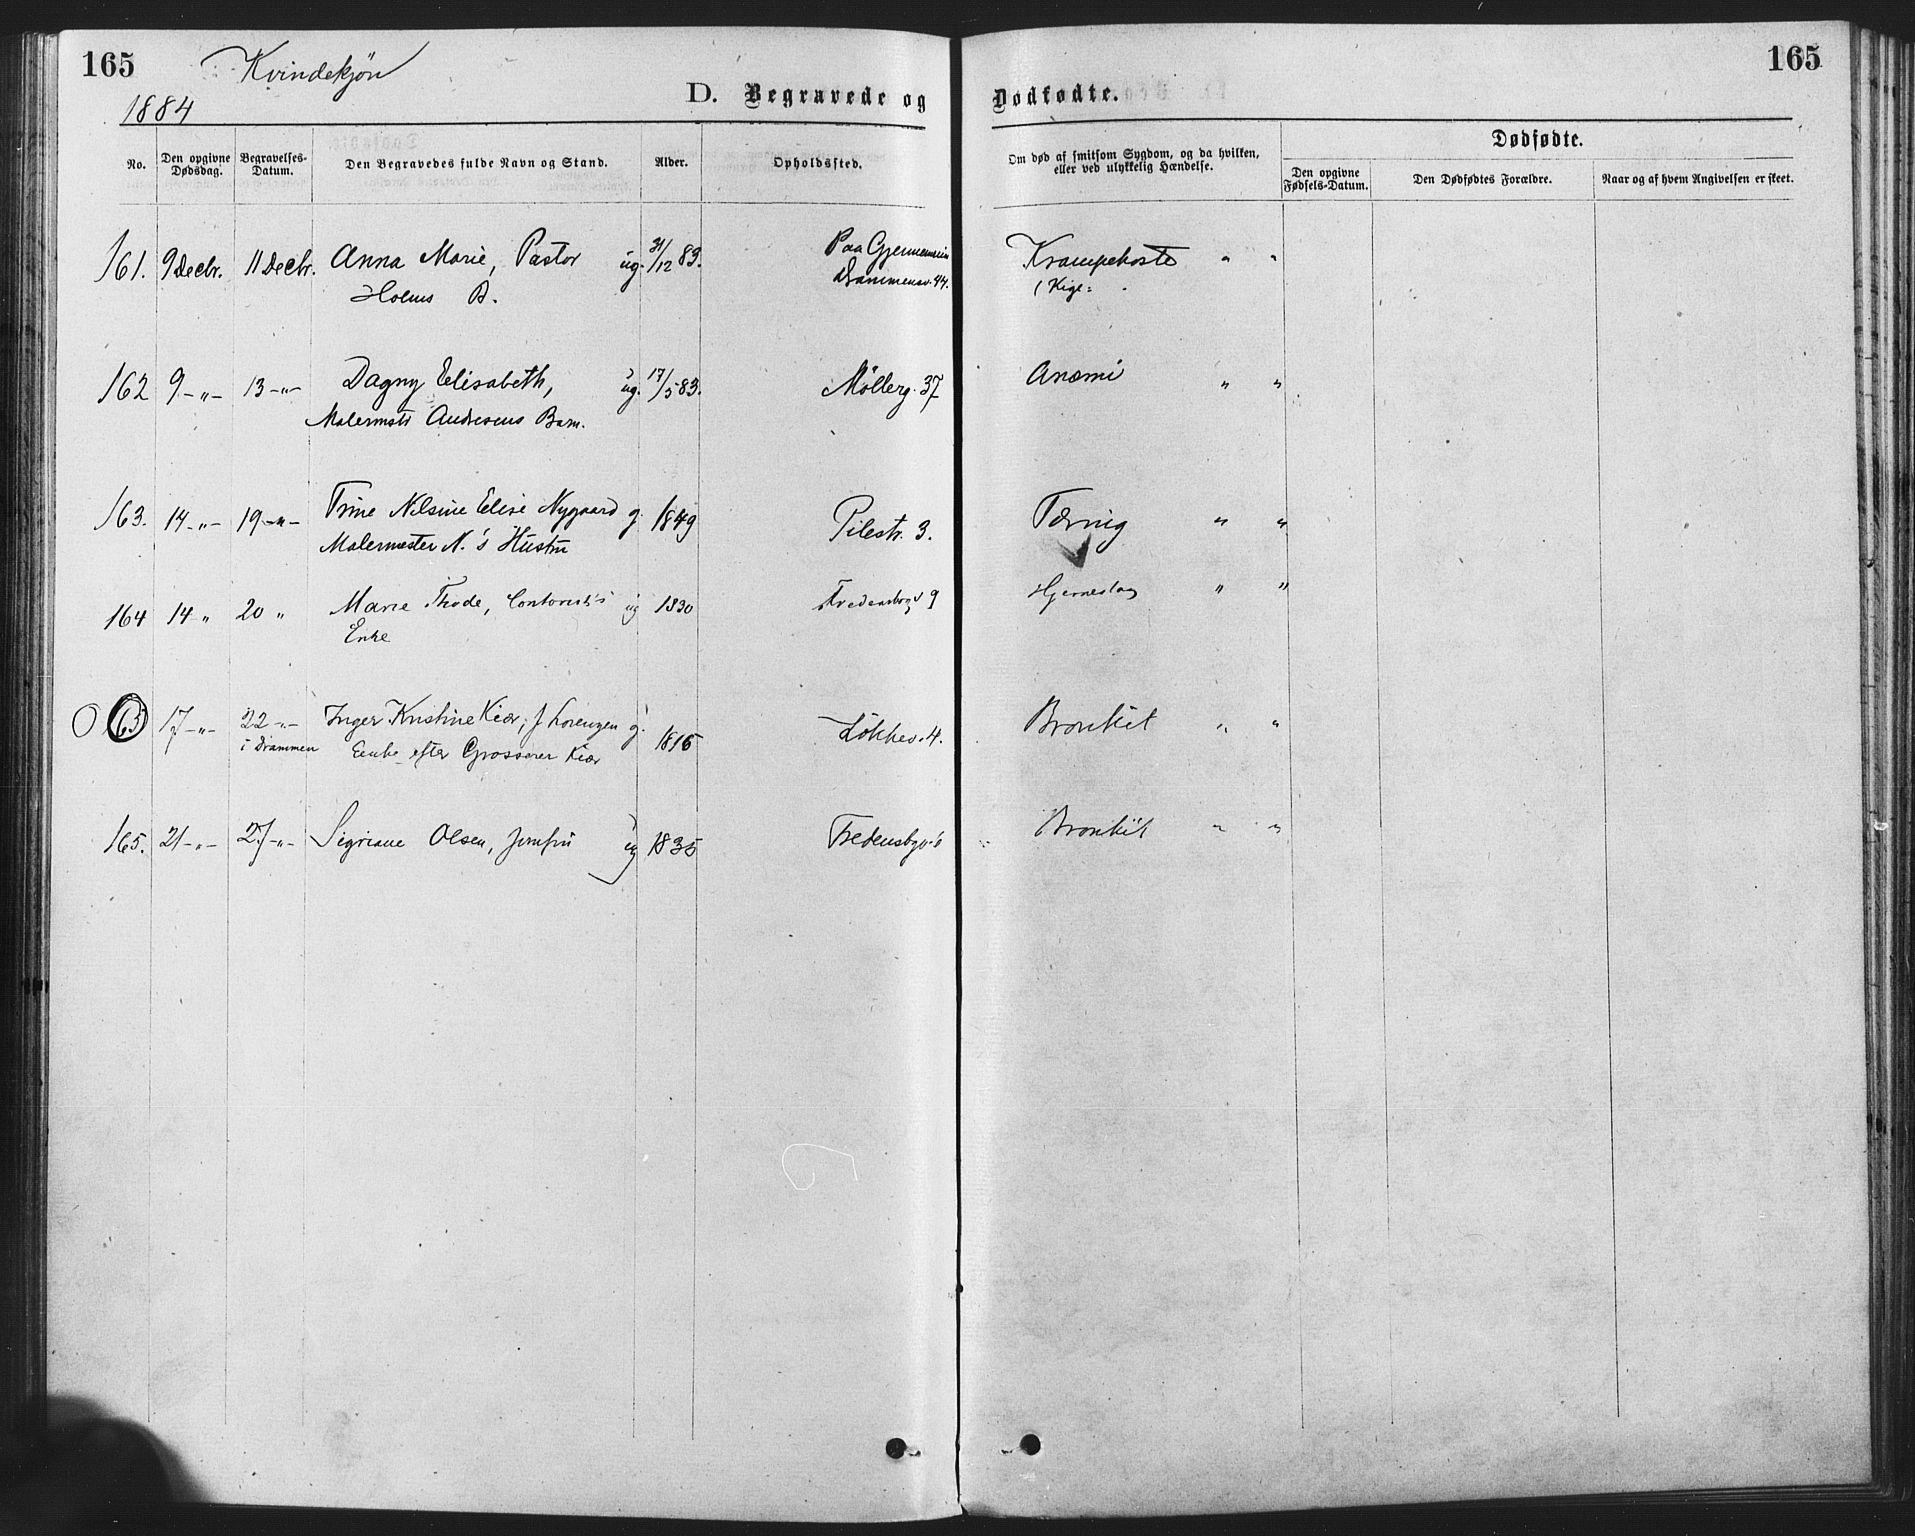 165 Kvindekjøn 165
1884
D. Begravede og Dødfødte.
No. Den opgivne Dødsdag. Begravelses-Datum. Den Begravedes fulde Navn og Stand. Alder. Opholdssted. Om død af smitsom Sygdom, og da hvilken, eller ved ulykkelig Hændelse. Dødfødte.
Den opgivne Fødsels-Datum. Den Dødfødtes Forældre. Naar og af hvem Angivelsen er skeet.
161. 9 Decbr. 11 Decbr. Anna Marie, Pastor ug. 31/12 83. Paa Krampehoste " "
Holms B. Drammensv. 44. (Kige:
162 9 -"- 13 -"- Dagny Elisabeth, ug. 17/5 83. Møllerg. 37 Anæmi " "
Malermstr Andresens Barn.
163. 14 -"- 19 -"- Trine Nilsine Elise Nygaard g. 1849 Pilestr. 3. Tæring " "
Malermester N.'s Hustru
164 14 " 20 " Marie Thode, ug 1830 9 Hjerneslag " "
Enke
17 -"- 22 -"- Inger Kristine Kiær, f. Lorenzen g. 1816 Løkkev. 4. Bronkit " "
i Drammen Enke efter Grosserer Kiær
165. 21 -"- 27 -"- Olsen, Jomfru ug 1835 Bronkit " "